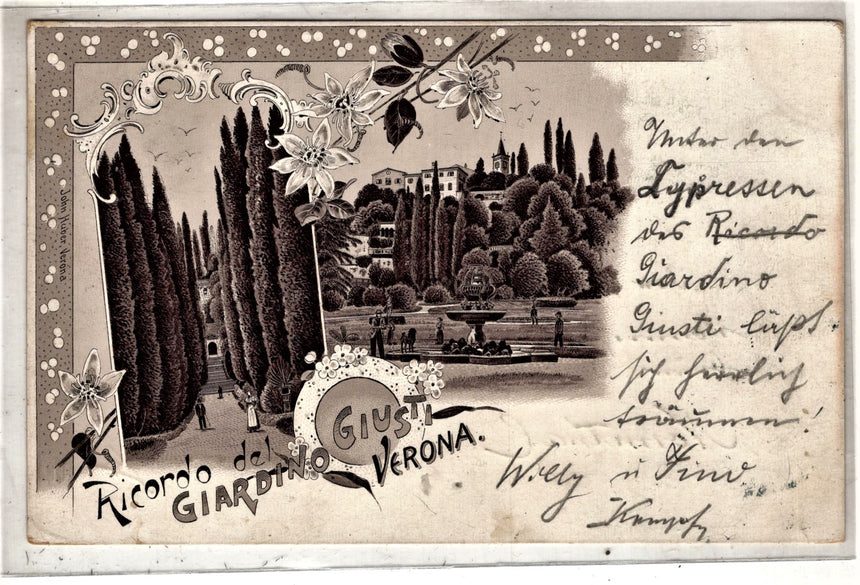 John Huber Verona
Ricordo del
GIARDINO GIUSTI
VERONA.
Unter den
Zypressen
des Ricordo
Giardino
Giusti läßt
sich herrlich
träumen!
Willy u